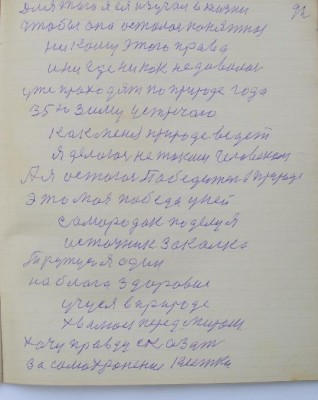 92
для этого я ея изучал в жизни
чтобы она осталася понятной
никому этого права
и ни где ни как не давалось
уже проходят по природе года
35ю зиму встречаю
как меня природе ведет
я делался не таким человеком
А я остался Победителем в природе
это моя победа у ней
самородок поделуся
источник закалка
тружуся один
на благо здоровие
учуся в природе
хвалюся перед миром
хочу правду сказать
за самохранение клетки